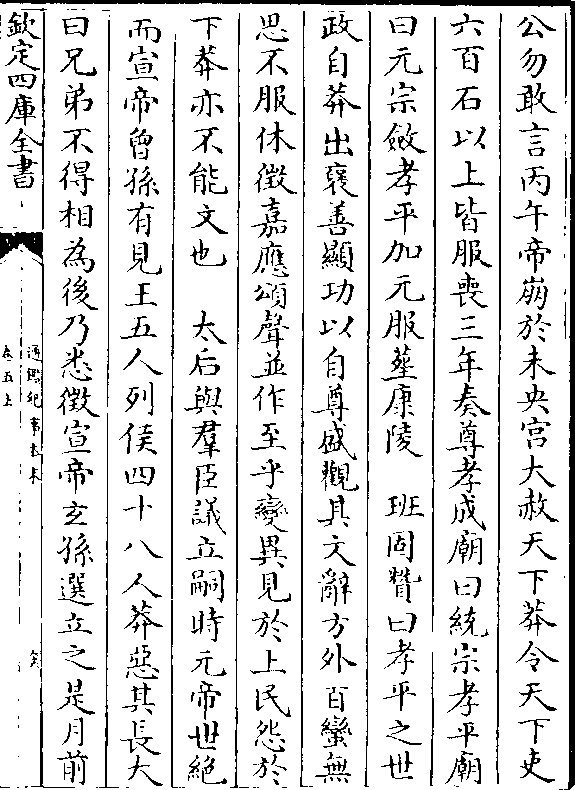 公勿敢言丙午帝崩於未央宫大赦天下莽令天下吏
六百石以上皆服喪三年奏尊孝成廟曰統宗孝平廟
曰元宗斂孝平加元服塟康陵　班固贊曰孝平之世
政自莽出褒善顯功以自尊盛觀其文辭方外百蠻無
思不服休徵嘉應頌聲並作至乎變異見於上民怨於
下莽亦不能文也　太后與羣臣議立嗣時元帝世絶
而宣帝曾孫有見王五人列侯四十八人莽惡其長大
曰兄弟不得相為後乃悉徵宣帝玄孫選立之是月前
欽定四庫全書
通鑑紀事本末
卷五上